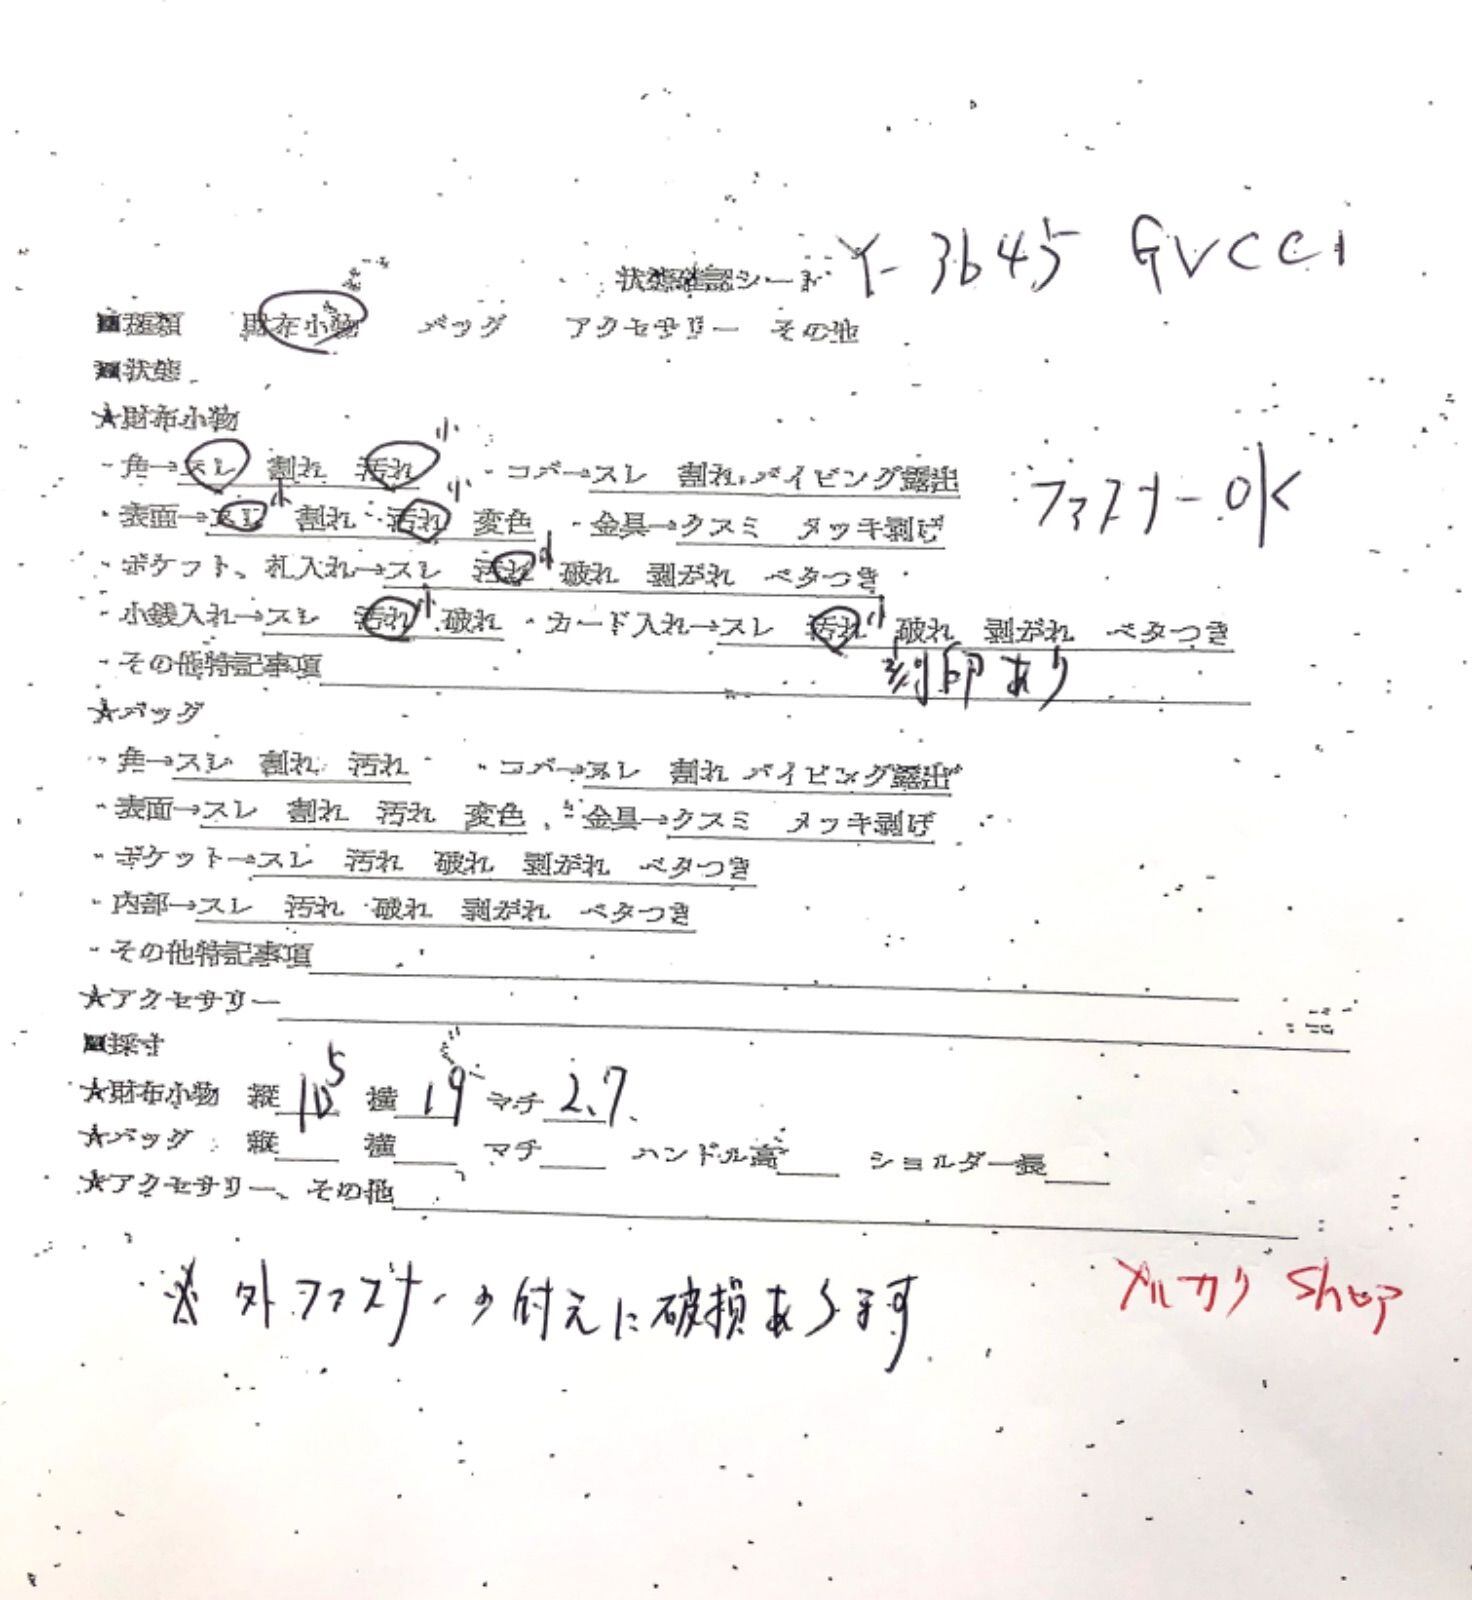 状態確認シート Y-3645 GUCCI
■種類 財布小物 バッグ アクセサリー その他
■状態
★財布小物
・角→スレ 割れ 汚れ 小 ・コバ→スレ 割れ パイピング露出
ファスナーOK
・表面→スレ 小 割れ 汚れ 小 変色 ・金具→クスミ メッキ剥げ
・ポケット、札入れ→スレ 汚れ 小 破れ 剥がれ ベタつき
・小銭入れ→スレ 汚れ 小 破れ ・カード入れ→スレ 汚れ 小 破れ 剥がれ ベタつき
・その他特記事項 刻印あり
★バッグ
・角→スレ 割れ 汚れ ・コバ→スレ 割れ パイピング露出
・表面→スレ 割れ 汚れ 変色 ・金具→クスミ メッキ剥げ
・ポケット→スレ 汚れ 破れ 剥がれ ベタつき
・内部→スレ 汚れ 破れ 剥がれ ベタつき
・その他特記事項
★アクセサリー
■採寸
★財布小物 縦 10.5 横 19 マチ 2.7
★バッグ 縦 横 マチ ハンドル高 ショルダー長
★アクセサリー、その他
※外ファスナーの付えに破損あります
メルカリ Shop